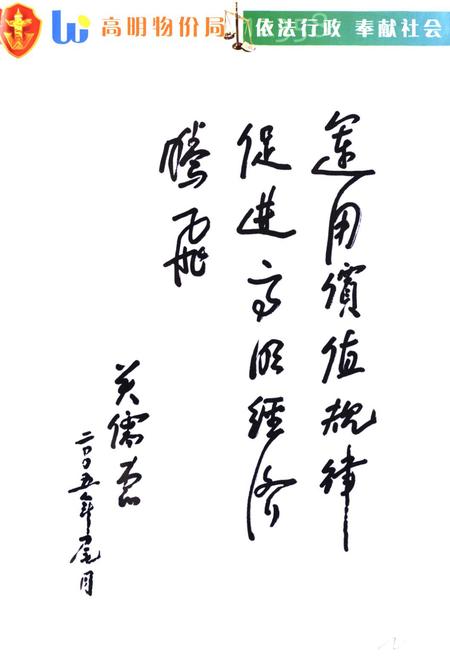 高明物价局
依法行政 奉献社会
運用價值规律
促进高明經济
騰飛
二〇〇五年
月